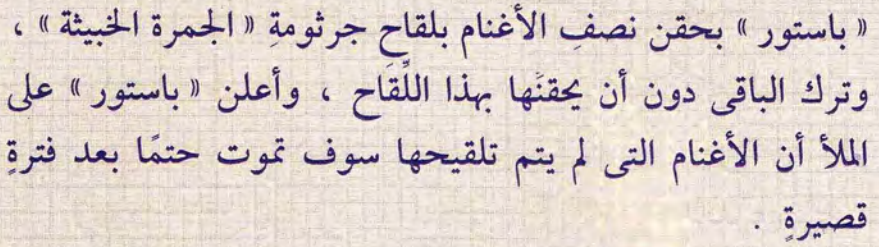 « باستور » بحقن نصفِ الأغنام بلقاح جرثومةِ « الجمرة الخبيثة » ،
وترك الباقى دون أن يحقنَها بهذا اللِّقَاح ، وأعلن « باستور » على
الملأ أن الأغنام التى لم يتم تلقيحها سوف تموت حتمًا بعد فترةٍ
قصيرةٍ .